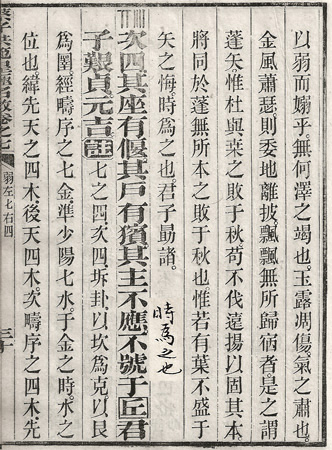 以弱而嫋乎。無何澤之竭也。玉露凋傷。氣之肅也。
金風蕭瑟。則委地離披。飄飄無所歸宿者。是之謂
蓬矢惟杜與桒之敗于秋。苟不伐遠揚以固其本。
將同於蓬無所本之敗于秋也。惟若有葉不盛于
矢之悔。時為之也。君子勗諸。
時為之也
次四其座有偃其戶有獱其主不應不號于丘君
子艱貞元吉註七之四次四坼卦以坎為克以艮
為圉。經疇序之七金。準少陽七水。于金之時。水之
位也。緯先天之四木。後天四木。次疇序之四木。先
卷之七
弱左七右四